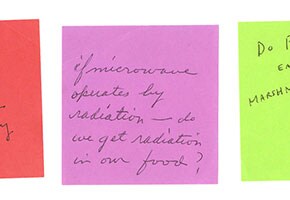 y
if microwave
operates by
radiation — do
we get radiation
in our food?
Do P
EA
MARSHM